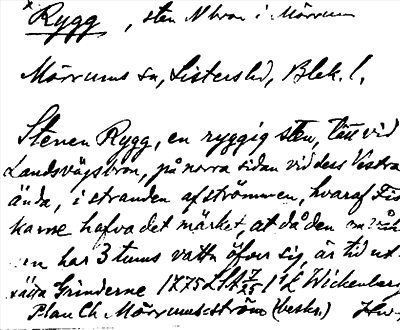 × Rygg, sten N bron i Mörrum
Mörrums sn, Listers hd, Blek. l.
Stenen Rygg, en ryggig sten, tätt vid
Landsvägsbron, på norra sidan vid dess Vestra
ända, i stranden af strömmen, hvaraf Fis
karne hafva det märket, at då den
en har 3 tums vattn öfver sig, är tid ut
sätta Grinderne 1775 L Wickenberg
Plan Ch Mörrumsström (beskr.)